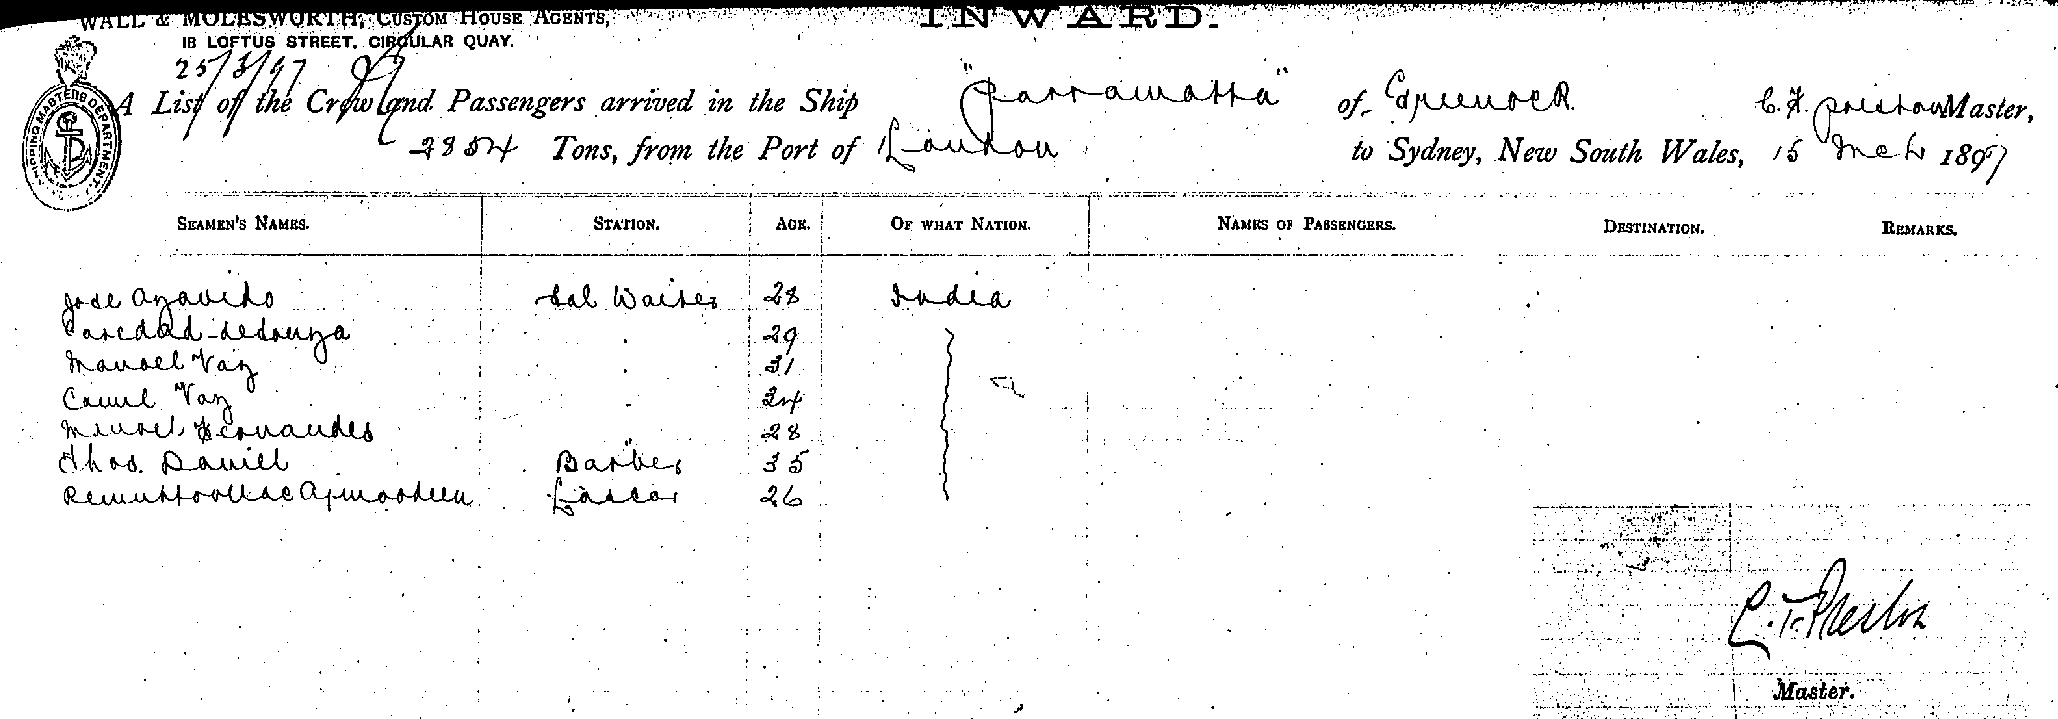 WALL & MOLESWORTH, CUSTOM HOUSE AGENTS,
INWARD.
1B LOFTUS STREET, CIRCULAR QUAY.
25/3/97
SHIPPING MASTERS DEPARTMENT.
A List of the Crew and Passengers arrived in the Ship "Parramatta" of Greenock. C. F. Preston Master,
2854 Tons, from the Port of London to Sydney, New South Wales, 15 Mch 1897
SEAMEN'S NAMES. STATION. AGE. OF WHAT NATION. NAMES OF PASSENGERS. DESTINATION. REMARKS.
Jose Azavido Sal Waiter 28 India
desouza 29
Manoel Vaz 31
Vaz 24
Manoel Fernandes 28
Thos. Daniell Barber 35
Lascar 26
C. F. Preston
Master.